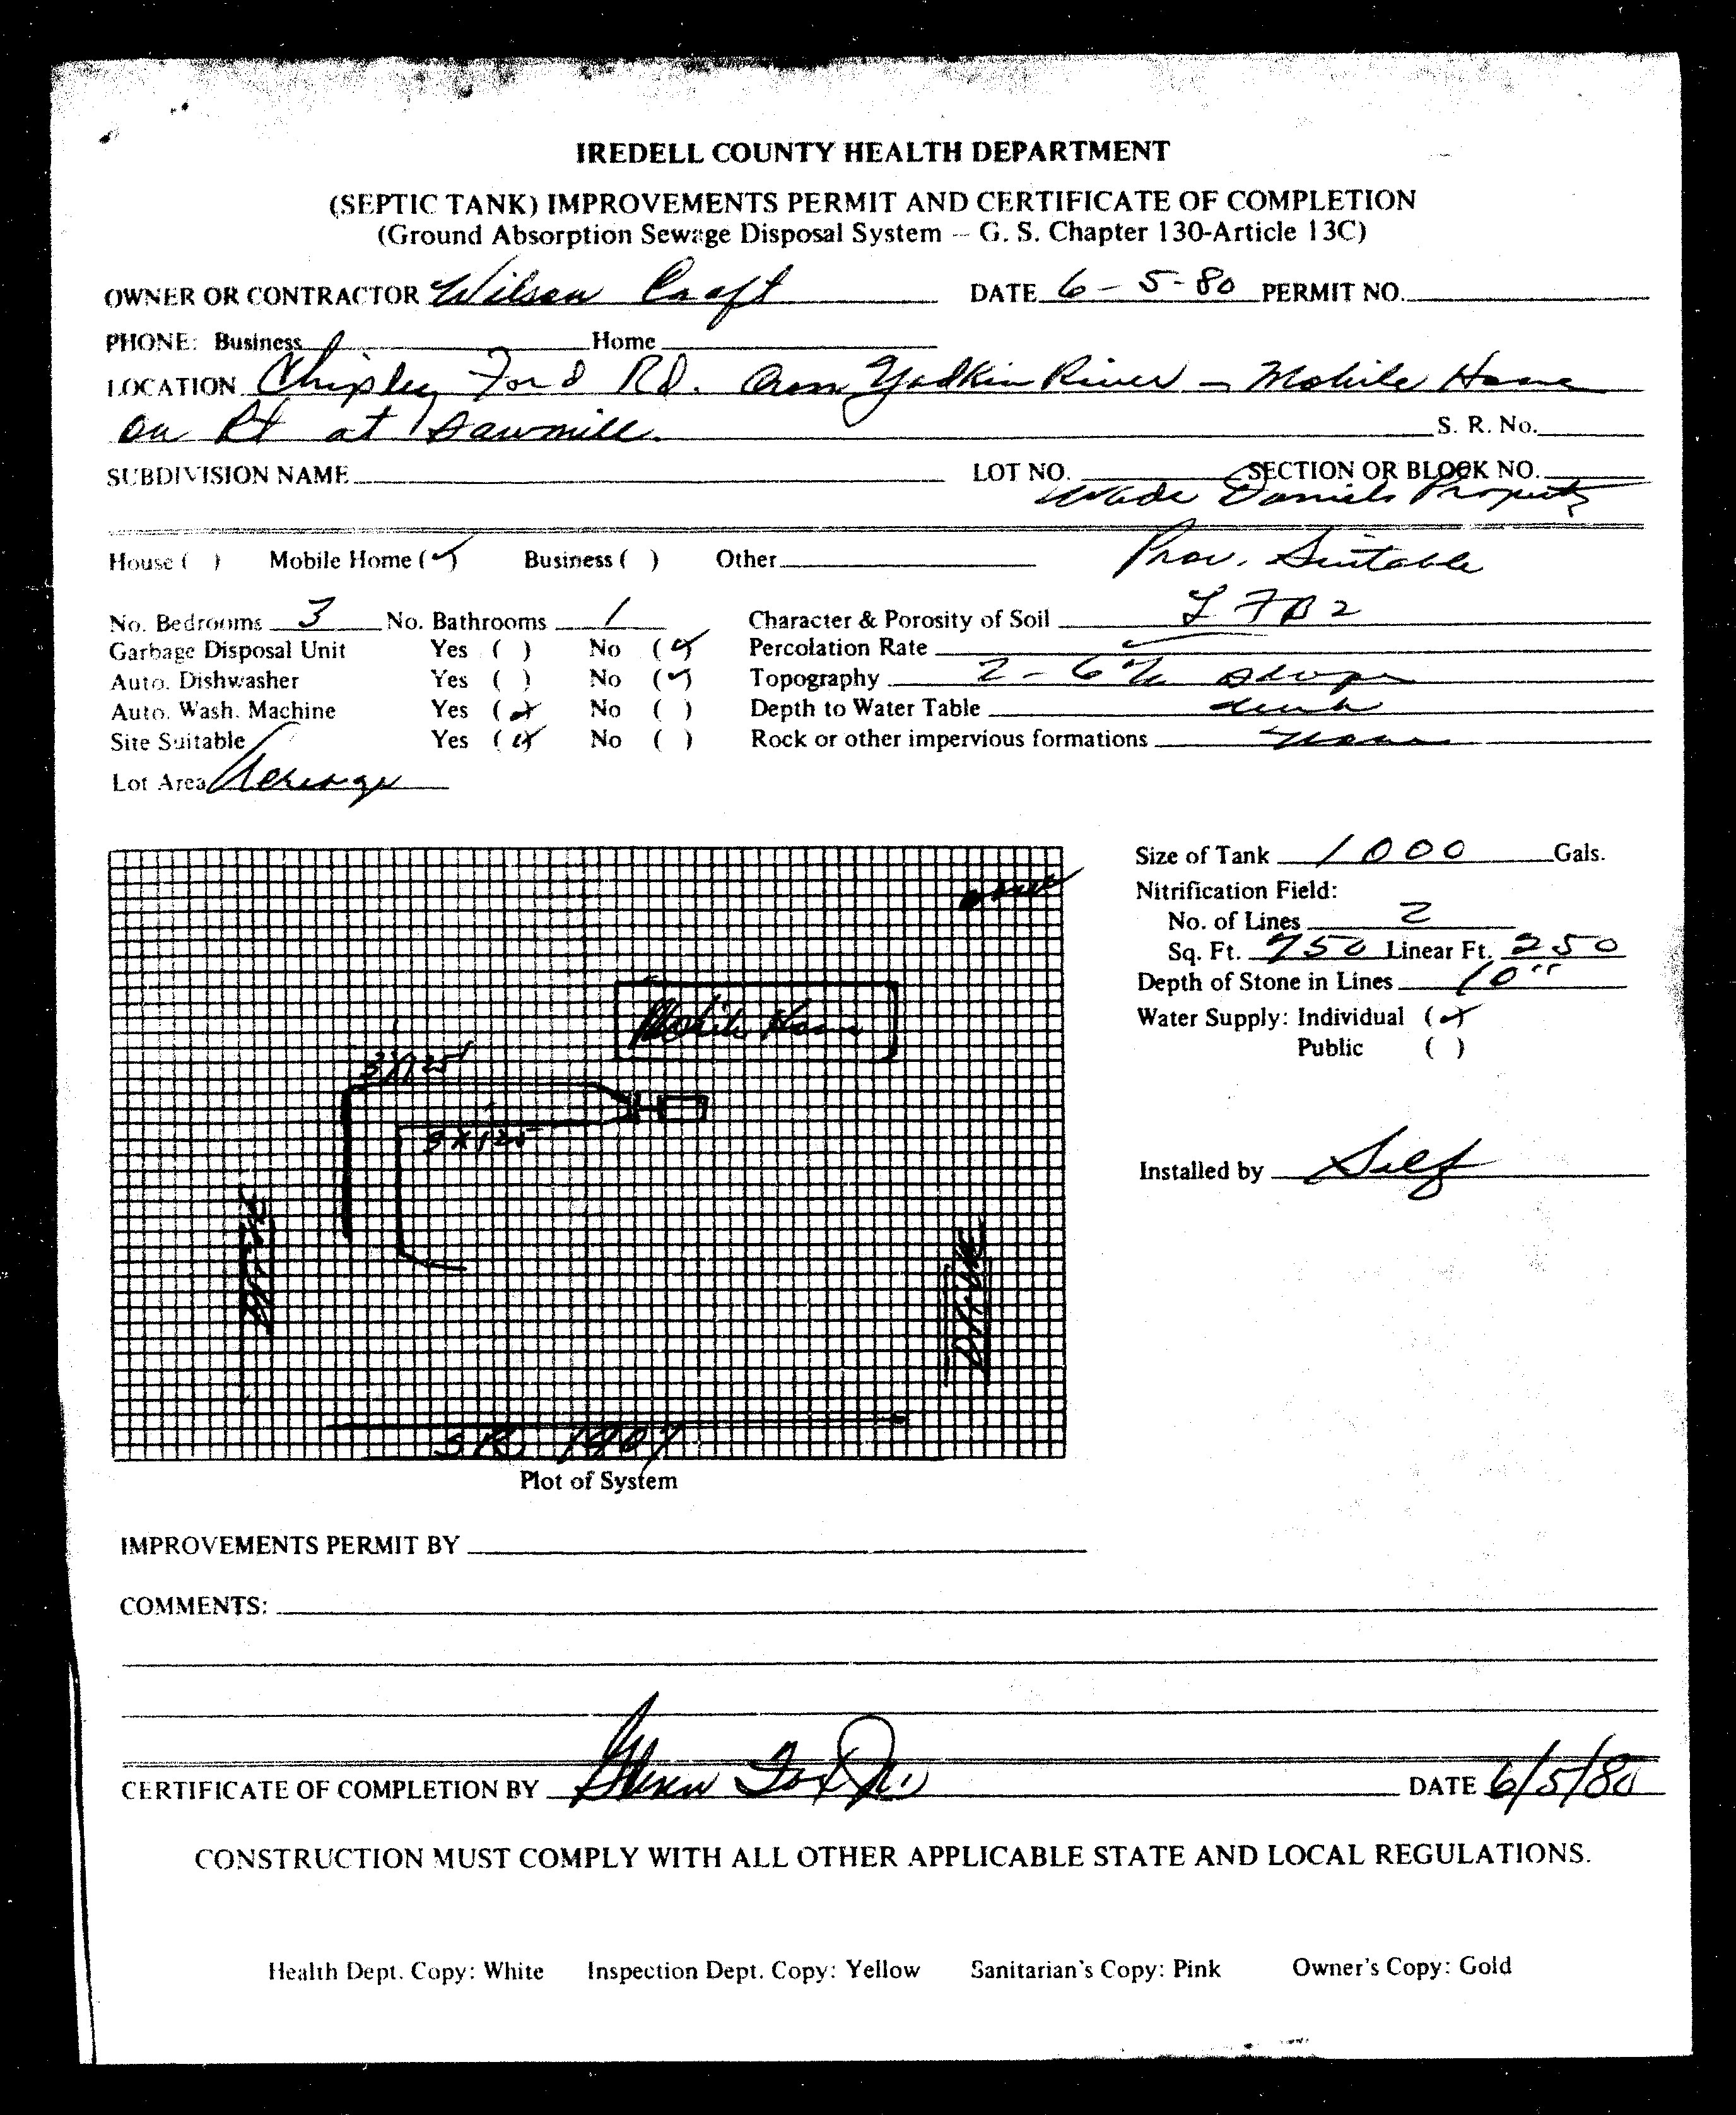 IREDELL COUNTY HEALTH DEPARTMENT
(SEPTIC TANK) IMPROVEMENTS PERMIT AND CERTIFICATE OF COMPLETION
(Ground Absorption Sewage Disposal System -- G. S. Chapter 130-Article 13C)
OWNER OR CONTRACTOR Wilson Craft DATE 6-5-80 PERMIT NO.
PHONE: Business Home
LOCATION Chipley Ford Rd. Yadkin River - Mobile Home
on Rt at Sawmill. S. R. No.
SUBDIVISION NAME LOT NO. SECTION OR BLOCK NO.
Wade Daniels Property
House ( ) Mobile Home (✓) Business ( ) Other Prov. Suitable
No. Bedrooms 3 No. Bathrooms 1 Character & Porosity of Soil
Garbage Disposal Unit Yes ( ) No (✓) Percolation Rate
Auto. Dishwasher Yes ( ) No (✓) Topography 2-6% slope
Auto. Wash. Machine Yes (✓) No ( ) Depth to Water Table
Site Suitable Yes (✓) No ( ) Rock or other impervious formations none
Lot Area Acreage
Size of Tank 1000 Gals.
Nitrification Field:
No. of Lines 2
Sq. Ft. 750 Linear Ft. 250
Depth of Stone in Lines 10"
Water Supply: Individual (✓)
Public ( )
Installed by Self
well
Mobile Home
3'X125'
3X125
Drive
Drive
SR 1907
Plot of System
IMPROVEMENTS PERMIT BY
COMMENTS:
CERTIFICATE OF COMPLETION BY DATE 6/5/80
CONSTRUCTION MUST COMPLY WITH ALL OTHER APPLICABLE STATE AND LOCAL REGULATIONS.
Health Dept. Copy: White Inspection Dept. Copy: Yellow Sanitarian's Copy: Pink Owner's Copy: Gold